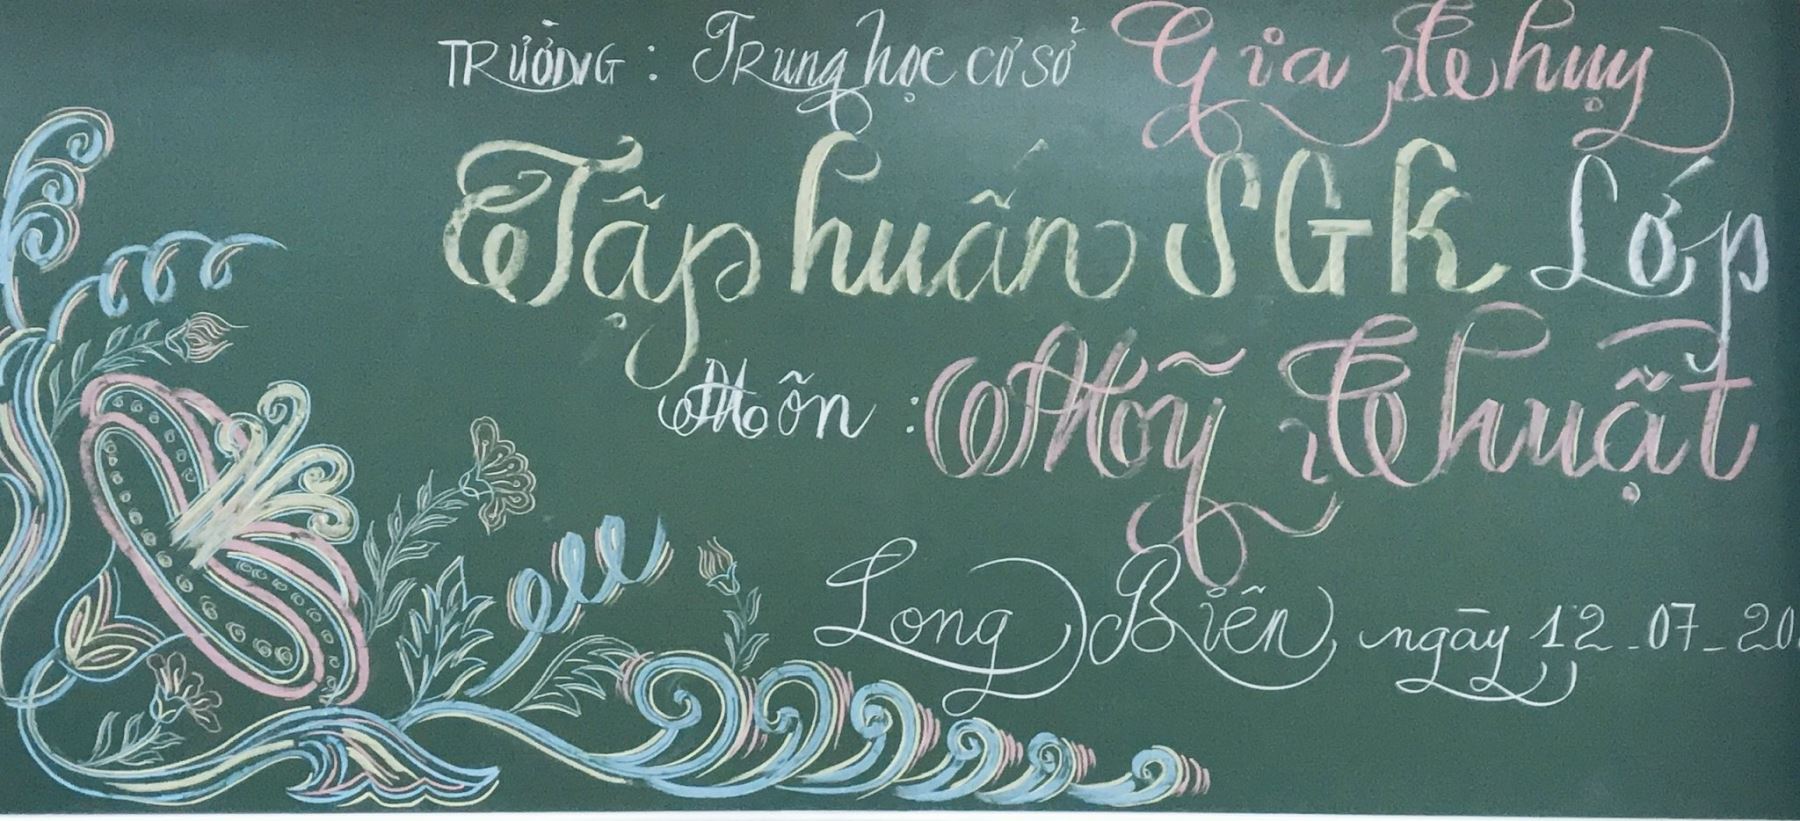 TRƯỜNG : Trung học cơ sở Gia Thụy
Tập huấn SGK Lớp
Môn : Mỹ Thuật
Long Biên ngày 12-07-20